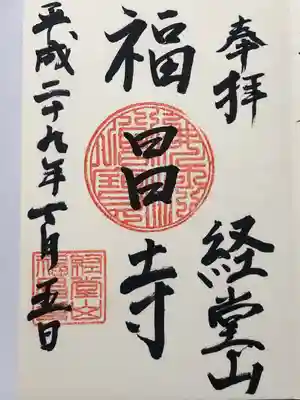 奉拝
経堂山
福昌寺
平成二九年 月五日